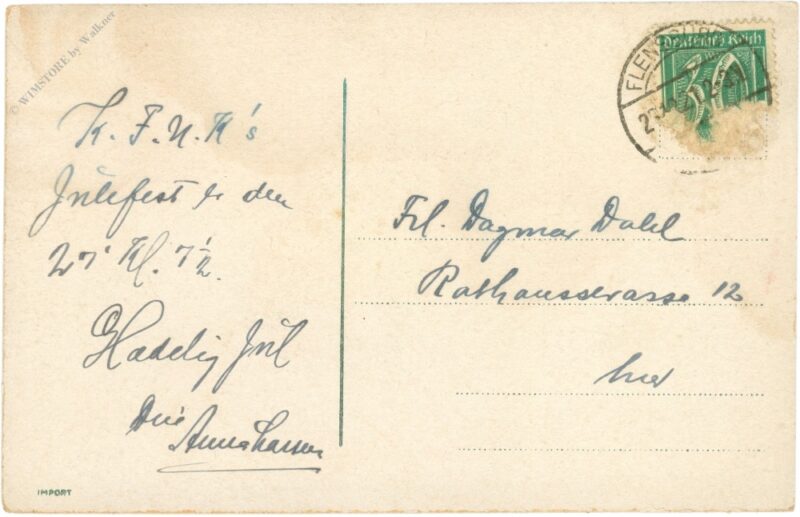 © WIMSTORE by Walkner
K. F. U. K's
Julefest er den
27' Kl. 7½.
Glædelig Jul
Anna Hansen
IMPORT
Deutsches Reich
FLENSBURG
Frl. Dagmar Dahl
Rathausstrasse 12
hier